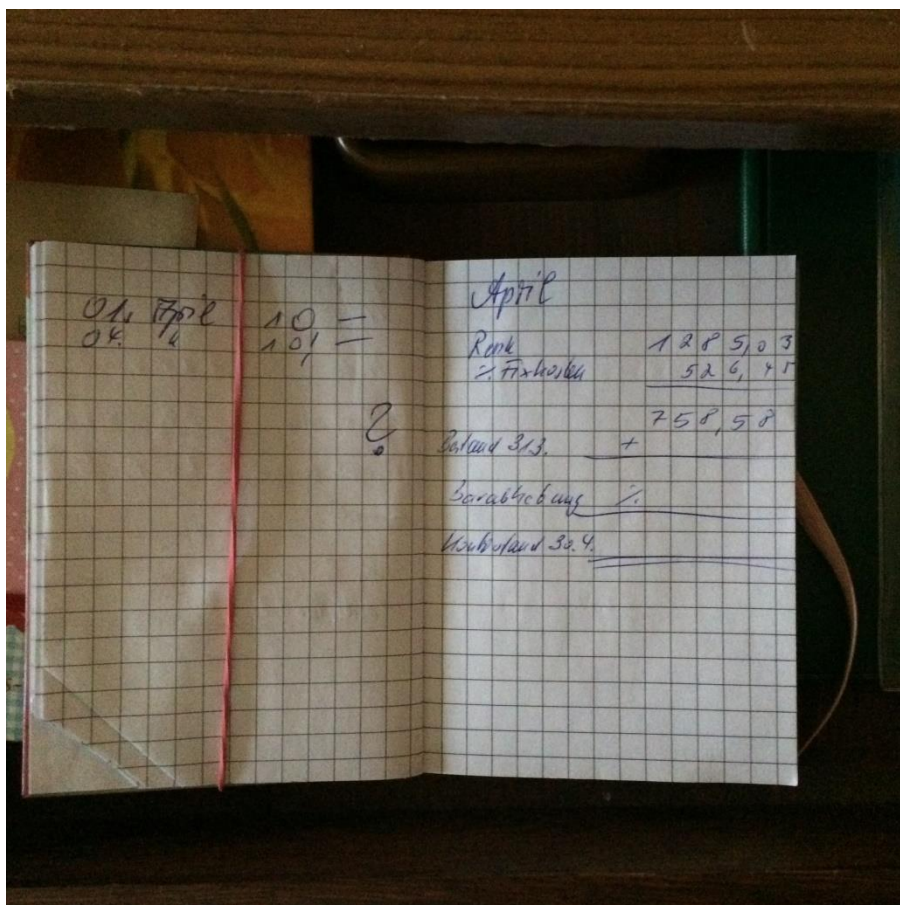 01. April 10,—
04. " 10,—
?
April
Rente 1285,03
·/. Fixkosten 526,45
758,58
Bestand 31.3. +
Barabhebung ·/.
Kontostand 30.4.